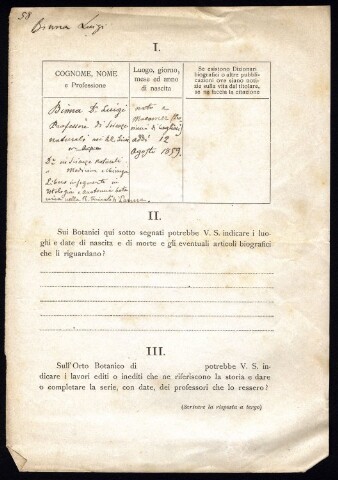 58
Binna Luigi
I.
COGNOME, NOME
e Professione
Luogo, giorno,
mese ed anno
di nascita
Se esistono Dizionari
biografici o altre pubbli-
cazioni ove siano noti-
zie sulla vita del titolare,
se ne faccia la citazione
Binna Dr. Luigi
Professore di Scienze
naturali nei RR. Licei
Dr. in Scienze Naturali
e Medicina e Chirurgia
Libero insegnante in
Istologia e anatomia bota
nica nella R. Università di
nato a
Macomer (Pro
vincia di Cagliari)
addì 12
Agosto 1859.
II.
Sui Botanici qui sotto segnati potrebbe V. S. indicare i luo-
ghi e date di nascita e di morte e gli eventuali articoli biografici
che li riguardano?
III.
Sull'Orto Botanico di potrebbe V. S. in-
dicare i lavori editi o inediti che ne riferiscono la storia e dare
o completare la serie, con date, dei professori che lo ressero?
(Scrivere la risposta a tergo)